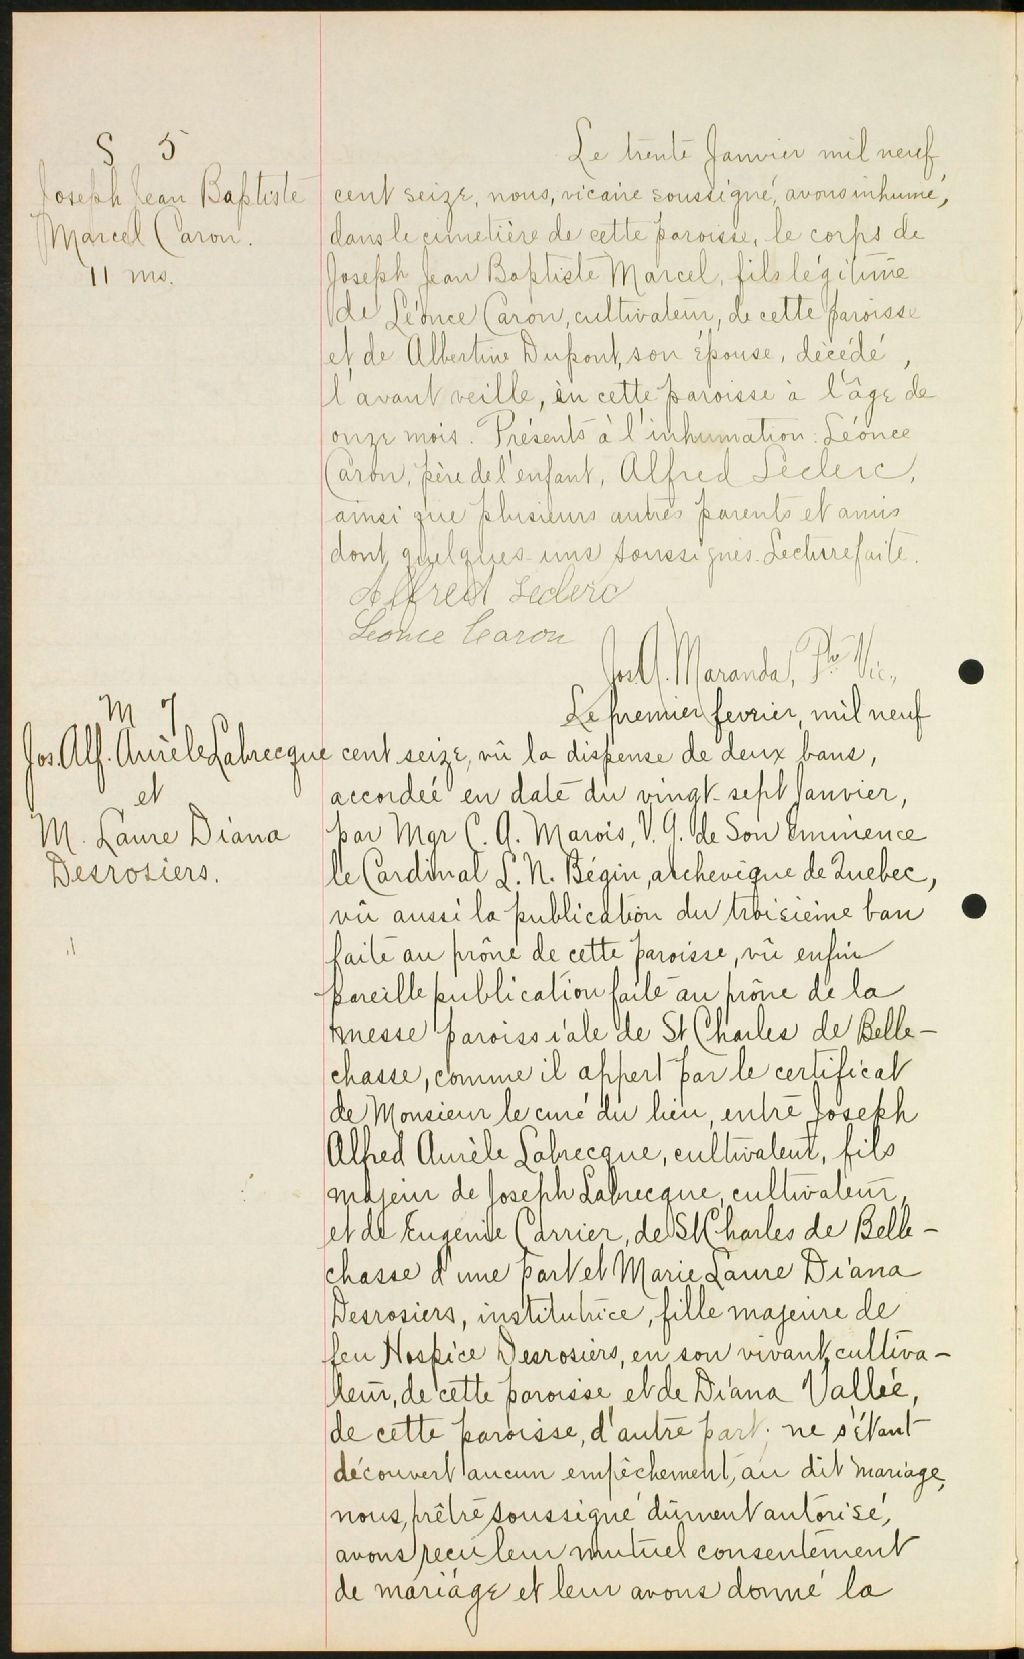 S 5
Joseph Jean Baptiste
Marcel Caron.
11 ms.
Le trente Janvier mil neuf
cent seize, nous, vicaire soussigné, avons inhumé,
dans le cimetière de cette paroisse, le corps de
Joseph Jean Baptiste Marcel, fils légitime
de Léonce Caron, cultivateur, de cette paroisse
et de Albertine Dupont, son épouse, décédé,
l'avant veille, en cette paroisse à l'âge de
onze mois. Présents à l'inhumation: Léonce
Caron, père de l'enfant, Alfred Leclerc,
ainsi que plusieurs autres parents et amis
dont quelques-uns soussignés. Lecture faite.
Alfred Leclerc
Léonce Caron
Jos. A. Maranda, Ptre Vic.,
M 7
Jos. Alf. Aurèle Labrecque
et
M. Laure Diana
Desrosiers.
Le premier fevrier, mil neuf
cent seize, vû la dispense de deux bans,
accordée en date du vingt-sept Janvier,
par Mgr C. A. Marois, V. G. de Son Eminence
le Cardinal L. N. Bégin, archevêque de Quebec,
vû aussi la publication du troisième ban
faite au prône de cette paroisse, vû enfin
pareille publication faite au prône de la
messe paroissiale de St Charles de Belle-
chasse, comme il appert par le certificat
de Monsieur le curé du lieu, entre Joseph
Alfred Aurèle Labrecque, cultivateur, fils
majeur de Joseph Labrecque, cultivateur,
et de Eugenie Carrier, de St Charles de Belle-
chasse d'une part et Marie Laure Diana
Desrosiers, institutrice, fille majeure de
feu Hospice Desrosiers, en son vivant, cultiva-
teur, de cette paroisse, et de Diana Vallée,
de cette paroisse, d'autre part; ne s'étant
découvert aucun empêchement, au dit mariage,
nous, prêtre soussigné dûment autorisé,
avons reçu leur mutuel consentement
de mariage et leur avons donné la